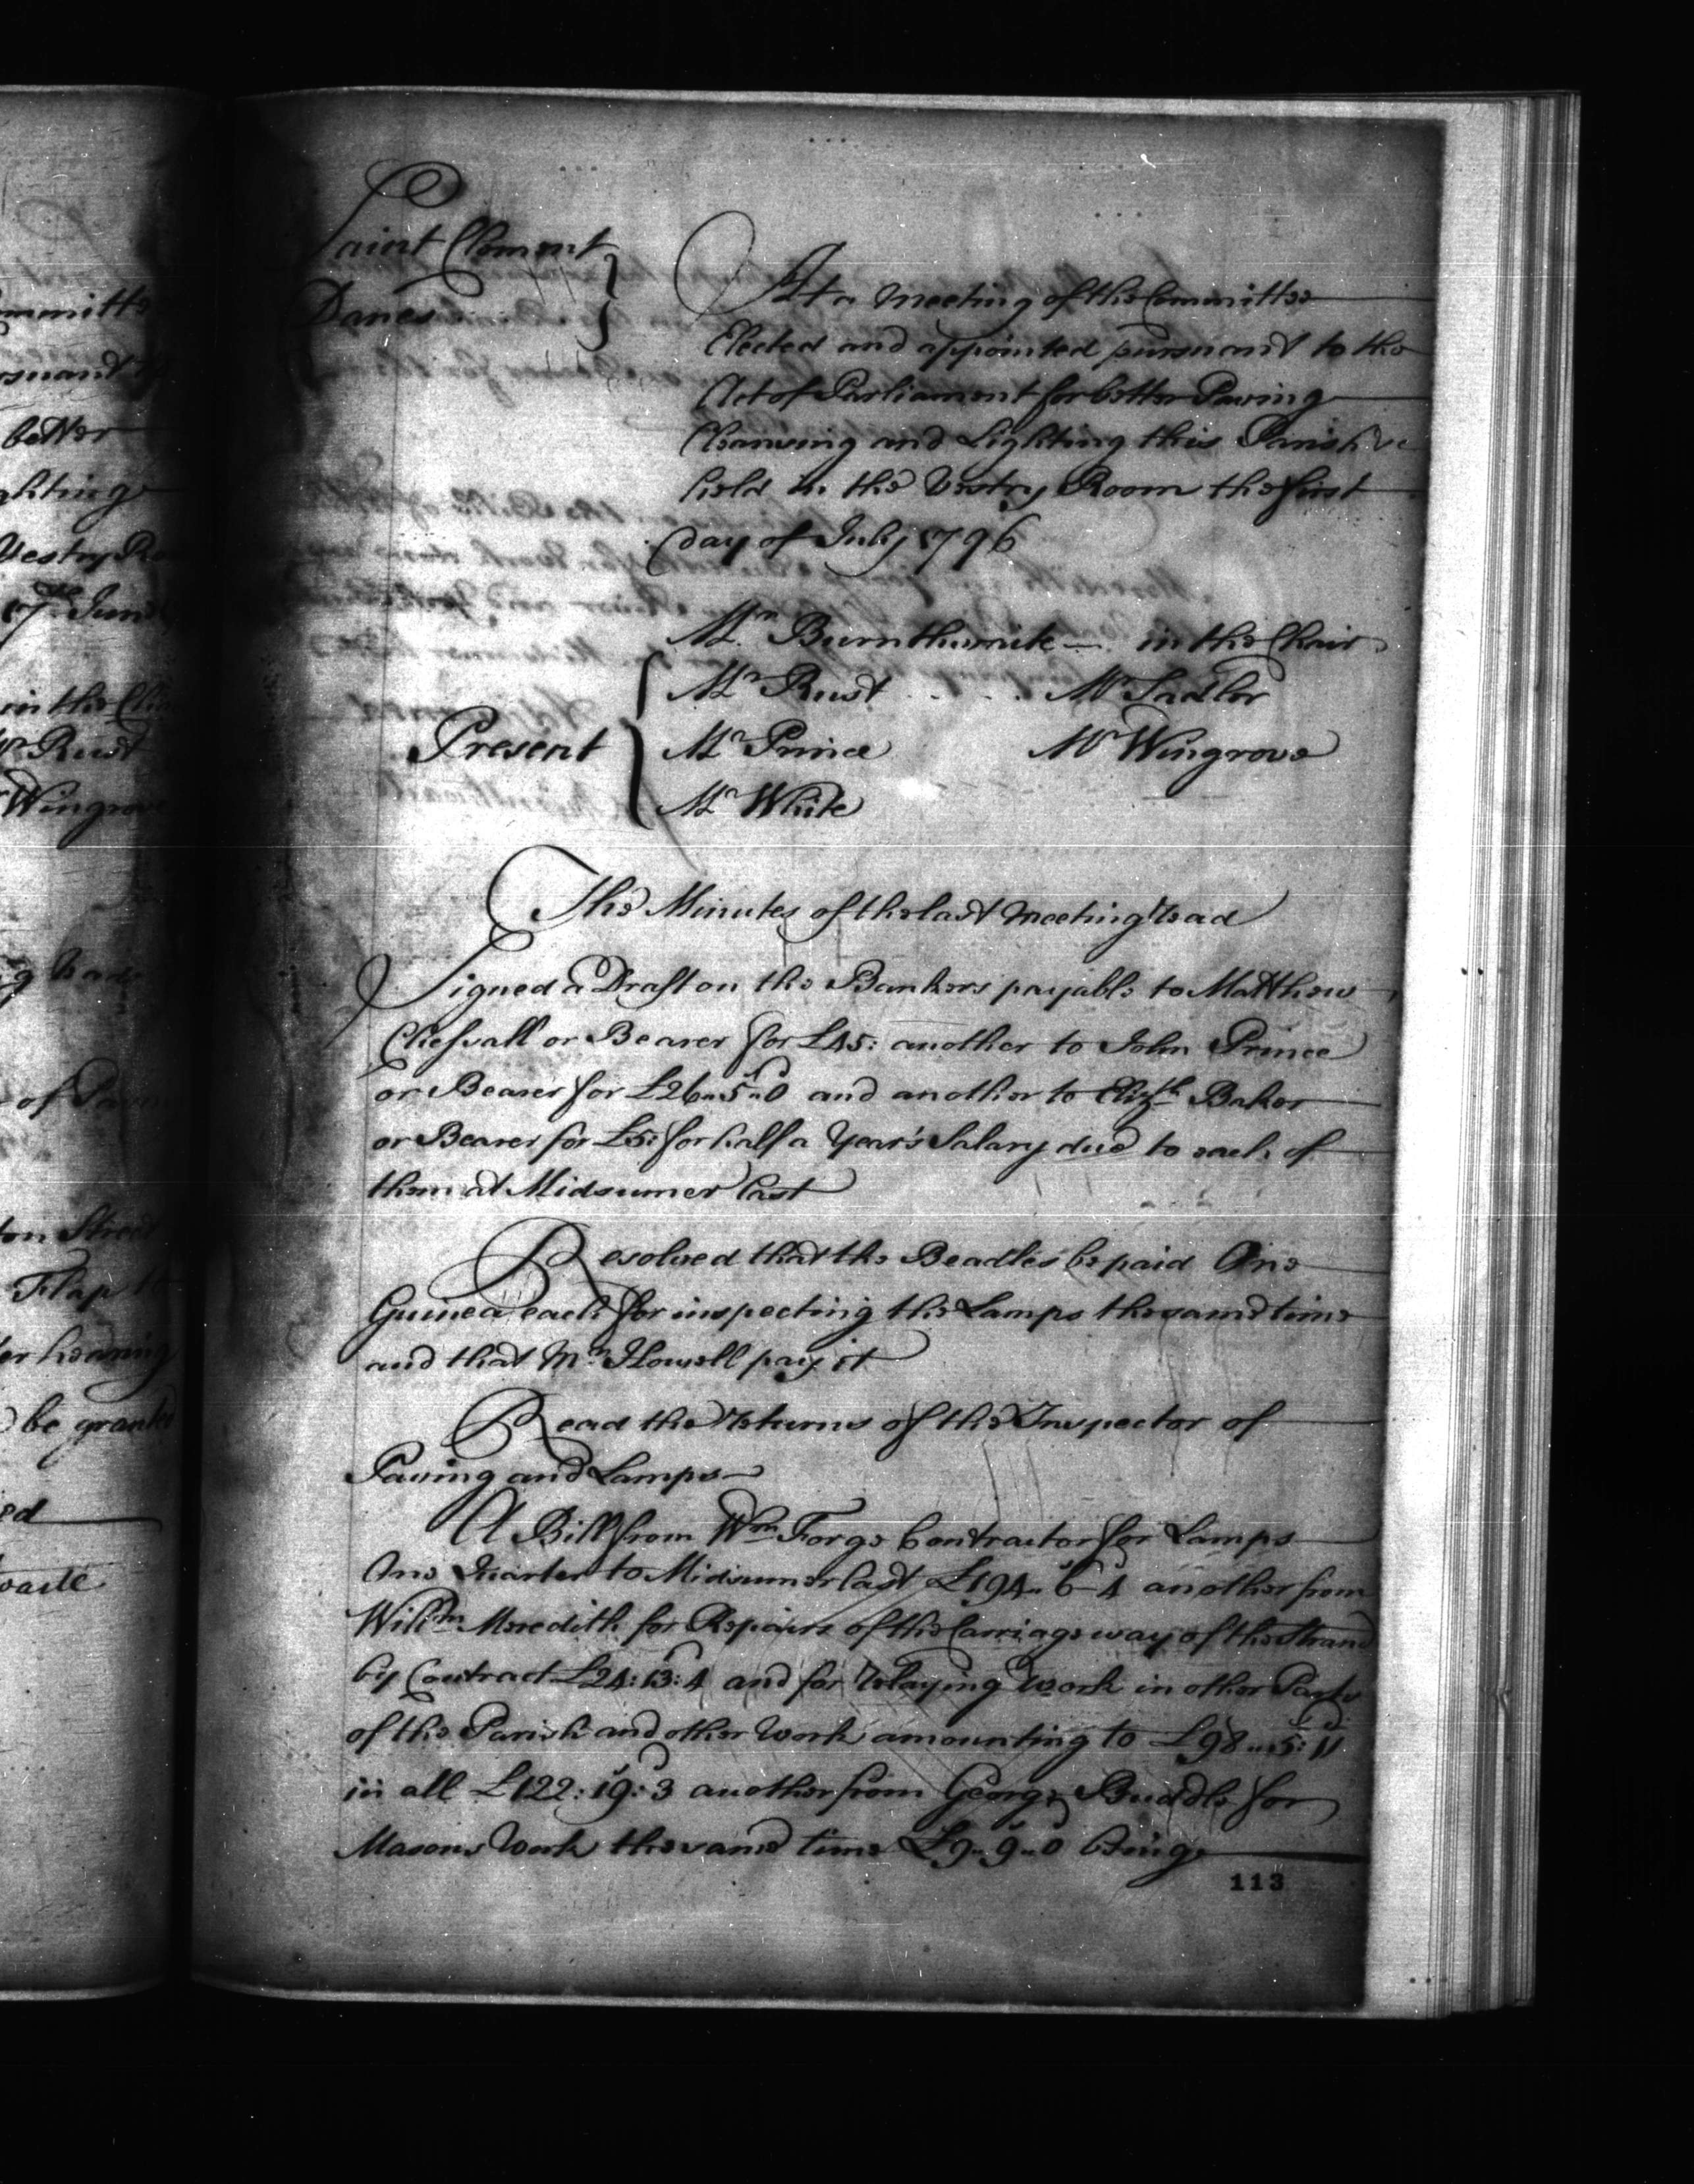 Saint Clement
Danes
At a Meeting of the Committee
Elected and appointed pursuant to the
Act of Parliament for better Paving
Cleansing and Lighting this Parish &c
held in the Vestry Room the first
day of July 1796
Mr. Burnthwaite in the Chair
Mr Rust Mr Sadler
Present Mr Prince Mr Wingrove
Mr White
The Minutes of the last Meeting read
Signed a Draft on the Bankers payable to Matthew
or Bearer for £45: another to John Prince
or Bearer for £26"5"0 and another to Elizth Baker
or Bearer for £5: for half a Year's Salary due to each of
them at Midsumer last
Resolved that the Beadles be paid One
Guinea each for inspecting the Lamps the same time
and that Mr Howell pay it
Read the returns of the Inspector of
Paving and Lamps
A Bill from Wm Forge Contractor for Lamps
One Quarter to Midsumer last £194"6"4 another from
Willm Meredith for Repairs of the Carriage way of the Strand
by Contract £24:13:4 and for relaying work in other Parts
of the Parish and other Work amounting to £98"5:11
in all £122:19:3 another from George Buddle for
Masons Work the same time £9"9"0 being
113
mmitte
rsuant
better
ghting
Vestry Ro
17th June
in the Chai
Mr Rust
Wingrove
g read
of Pavin
ton Street
Flap
er hearing
be granted
ed
waite